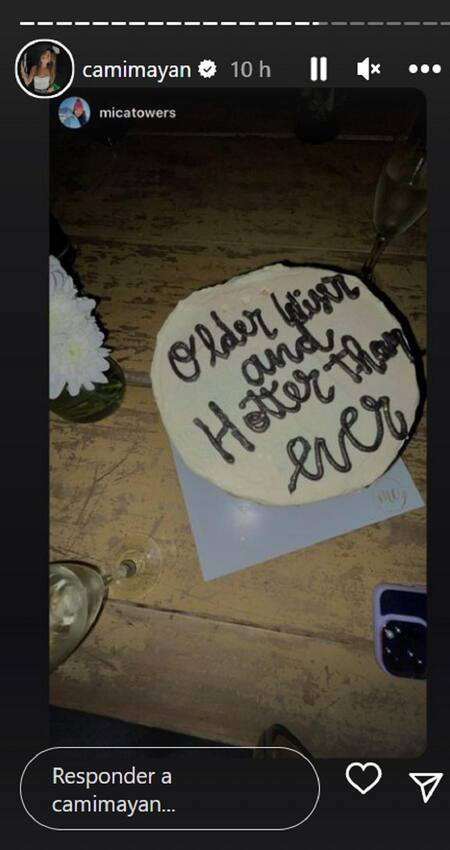 camimayan 10 h
micatowers
Older Wiser
and
Hotter Than
ever
me,
Responder a
camimayan...